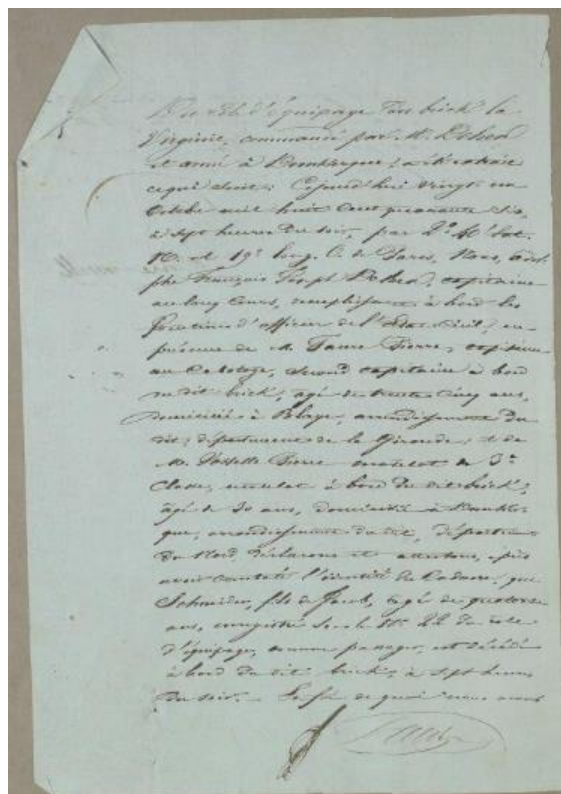 Du rôle d'équipage du brick la
Virginie, commandé par M.
et armé à Dunkerque, a été extrait
ce qui suit: Cejourd'hui vingt un
Octobre mil huit cent quarante six,
à sept heures du soir, par 2° 41' Lat.
N. et 19° long. O. de Paris, Nous, Adol
phe François Joseph, capitaine
au long cours, remplissant à bord les
fonctions d'officier de l'état civil, en
présence de M. Faure Pierre, capitaine
au Cabotage, second capitaine à bord
du dit brick, âgé de trente cinq ans,
domicilié à Blaye, arrondissement du
dit, département de la Gironde; et de
M. Pierre matelot de 3e
Classe, matelot à bord du dit brick,
âgé de 30 ans, domicilié à Dunker
que, arrondissement du dit, Départemt
du Nord, déclarons et attestons, après
avoir constaté l'identité du Cadavre, que
Schneider, fils de Jacob, âgé de quatorze
ans, enregistré sous le No 22 du rôle
d'équipage, comme passager, est décédé
à bord du dit brick, à sept heures
du soir. En foi de quoi nous avons